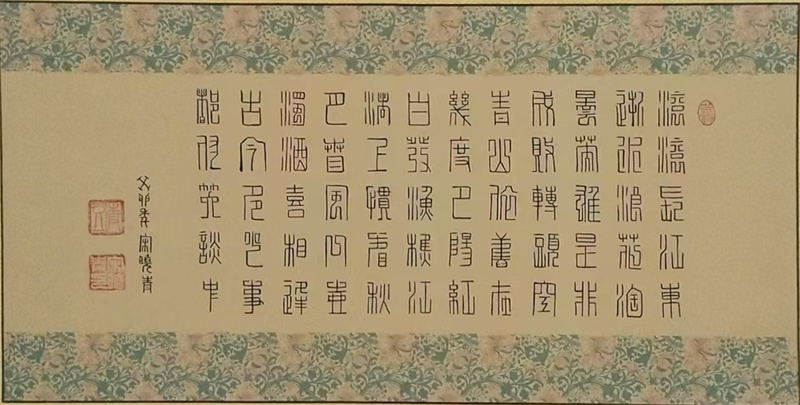 滾滾長江東
逝水浪花淘
盡英雄是非
成敗轉頭空
青山依舊在
幾度夕陽紅
白發漁樵江
渚上慣看秋
月春風一壺
濁酒喜相逢
古今多少事
都付笑談中
癸卯年 宋曉青